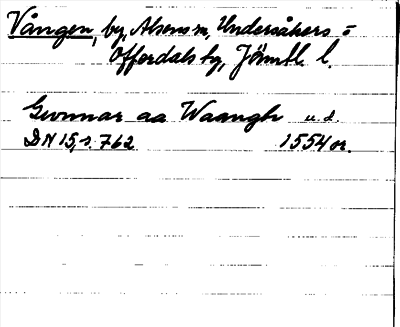 Vången, by, Alsens sn, Undersåkers o
Offerdals tg, Jämtl. l.
Gunnar aa Waangh u.d.
DN 15, s. 762 1554 or.